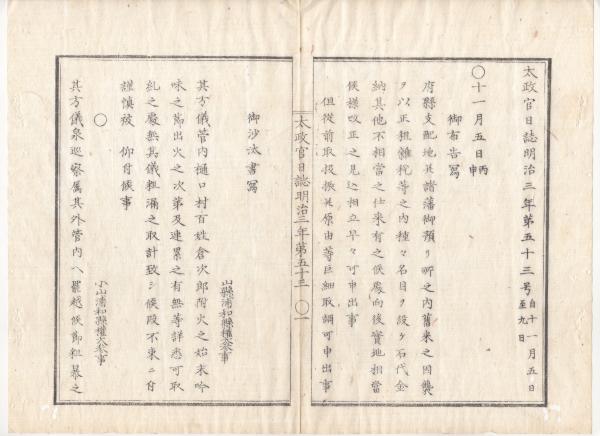 太政官日誌明治三年第五十三号 自十一月五日 至九日
〇十一月五日 丙申
御布告写
府縣支配地其諸藩御預リ所之内舊来之因襲
ヲ以正租雑税等之内種々名目ヲ設ケ石代金
納其他不相當之仕来有之候處向後實地相當
候様改正之見込相立早々可申出事
但従前取扱振其原由等巨細取調可申出事
太政官日誌明治三年第五十三 〇一
御沙汰書写
山縣浦和縣權大參事
其方儀管内樋口村百姓倉次郎附火之始末吟
味之節出火之次第及連累之有無等詳悉可取
糺之處無其儀粗漏之取計致シ候段不束ニ付
謹慎被 仰付候事
〇
小山浦和縣權大參事
其方儀泉巡察属其外管内ヘ罷越候節粗暴之